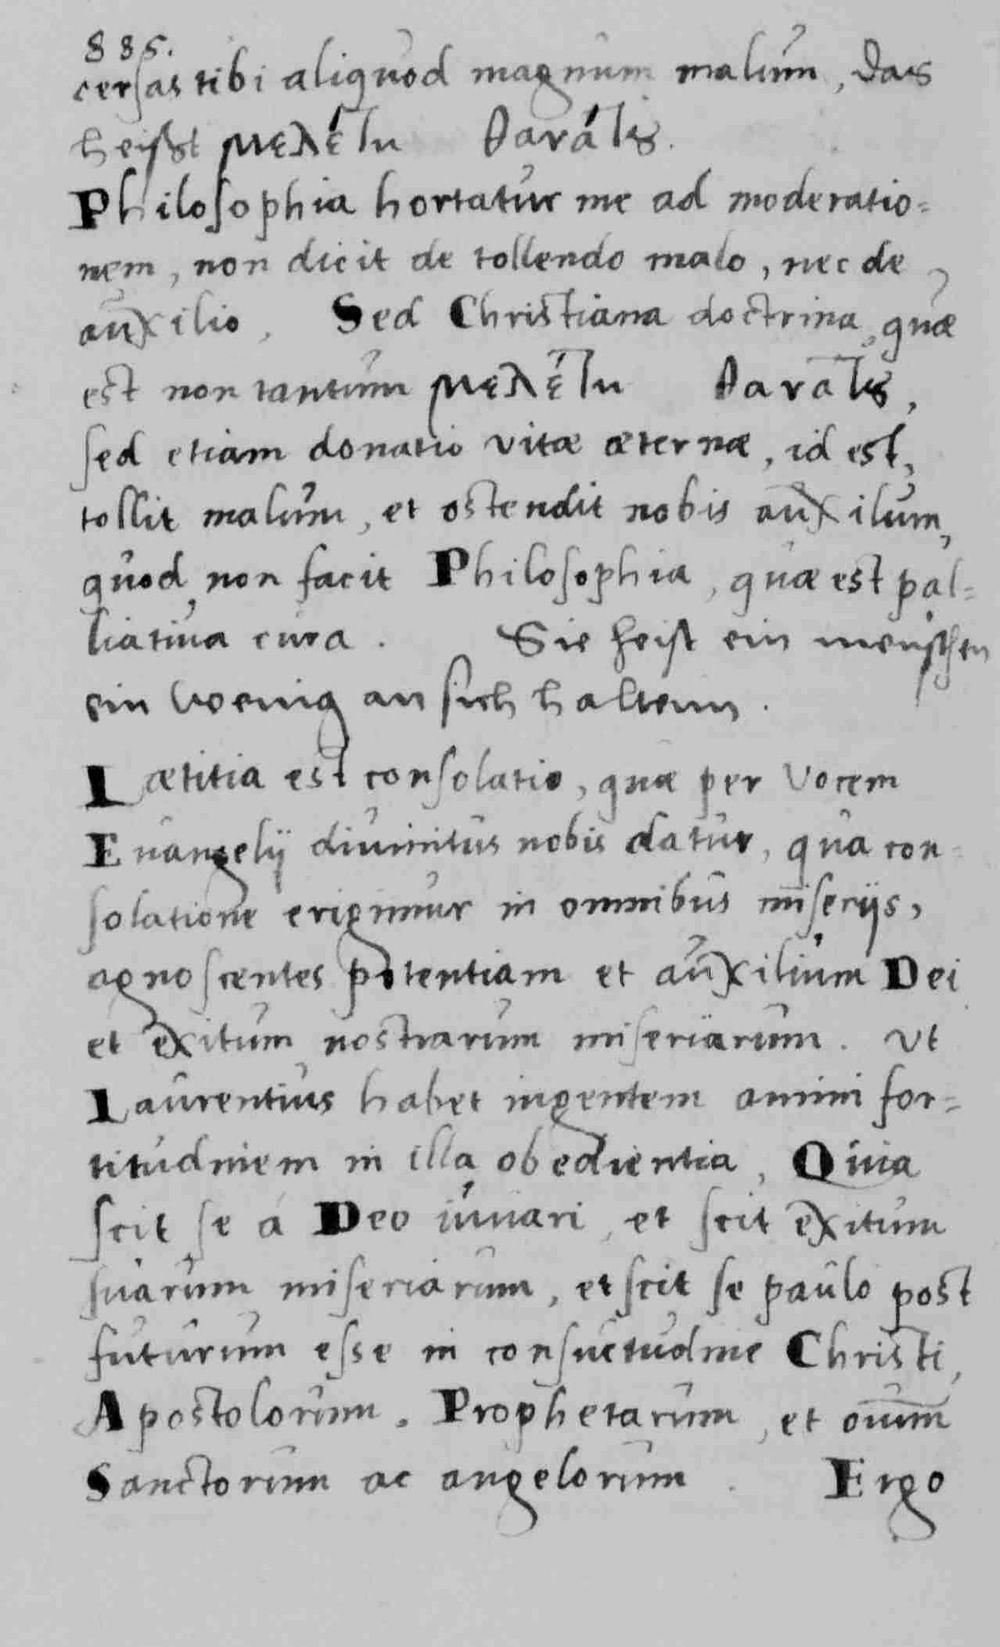 885.
cersas tibi aliquod magnum malum, das
heisst μελέτη θανάτου.
Philosophia hortatur me ad moderatio=
nem, non dicit de tollendo malo, nec de
auxilio. Sed Christiana doctrina, quæ
est non tantum μελέτη θανάτου,
sed etiam donatio vitæ æternæ, id est,
tollit malum, et ostendit nobis auxilum,
quod non facit Philosophia, quæ est pal=
liatiua cura. Sie heist ein menschen
ein wenig an sich haltenn.
Lætitia est consolatio, quæ per vocem
Euangelij diuinitus nobis datur, qua con=
solatione erigimur in omnibus miserijs,
agnoscentes potentiam et auxilium Dei
et exitum nostrarum miseriarum. Vt
Laurentius habet ingentem animi for=
titudinem in illa obedientia, Quia
scit se á Deo iuuari, et scit exitum
suarum miseriarum, et scit se paulo post
futurum esse in consuetudine Christi,
Apostolorum, Prophetarum, et oiūm
Sanctorum ac angelorum. Ergo